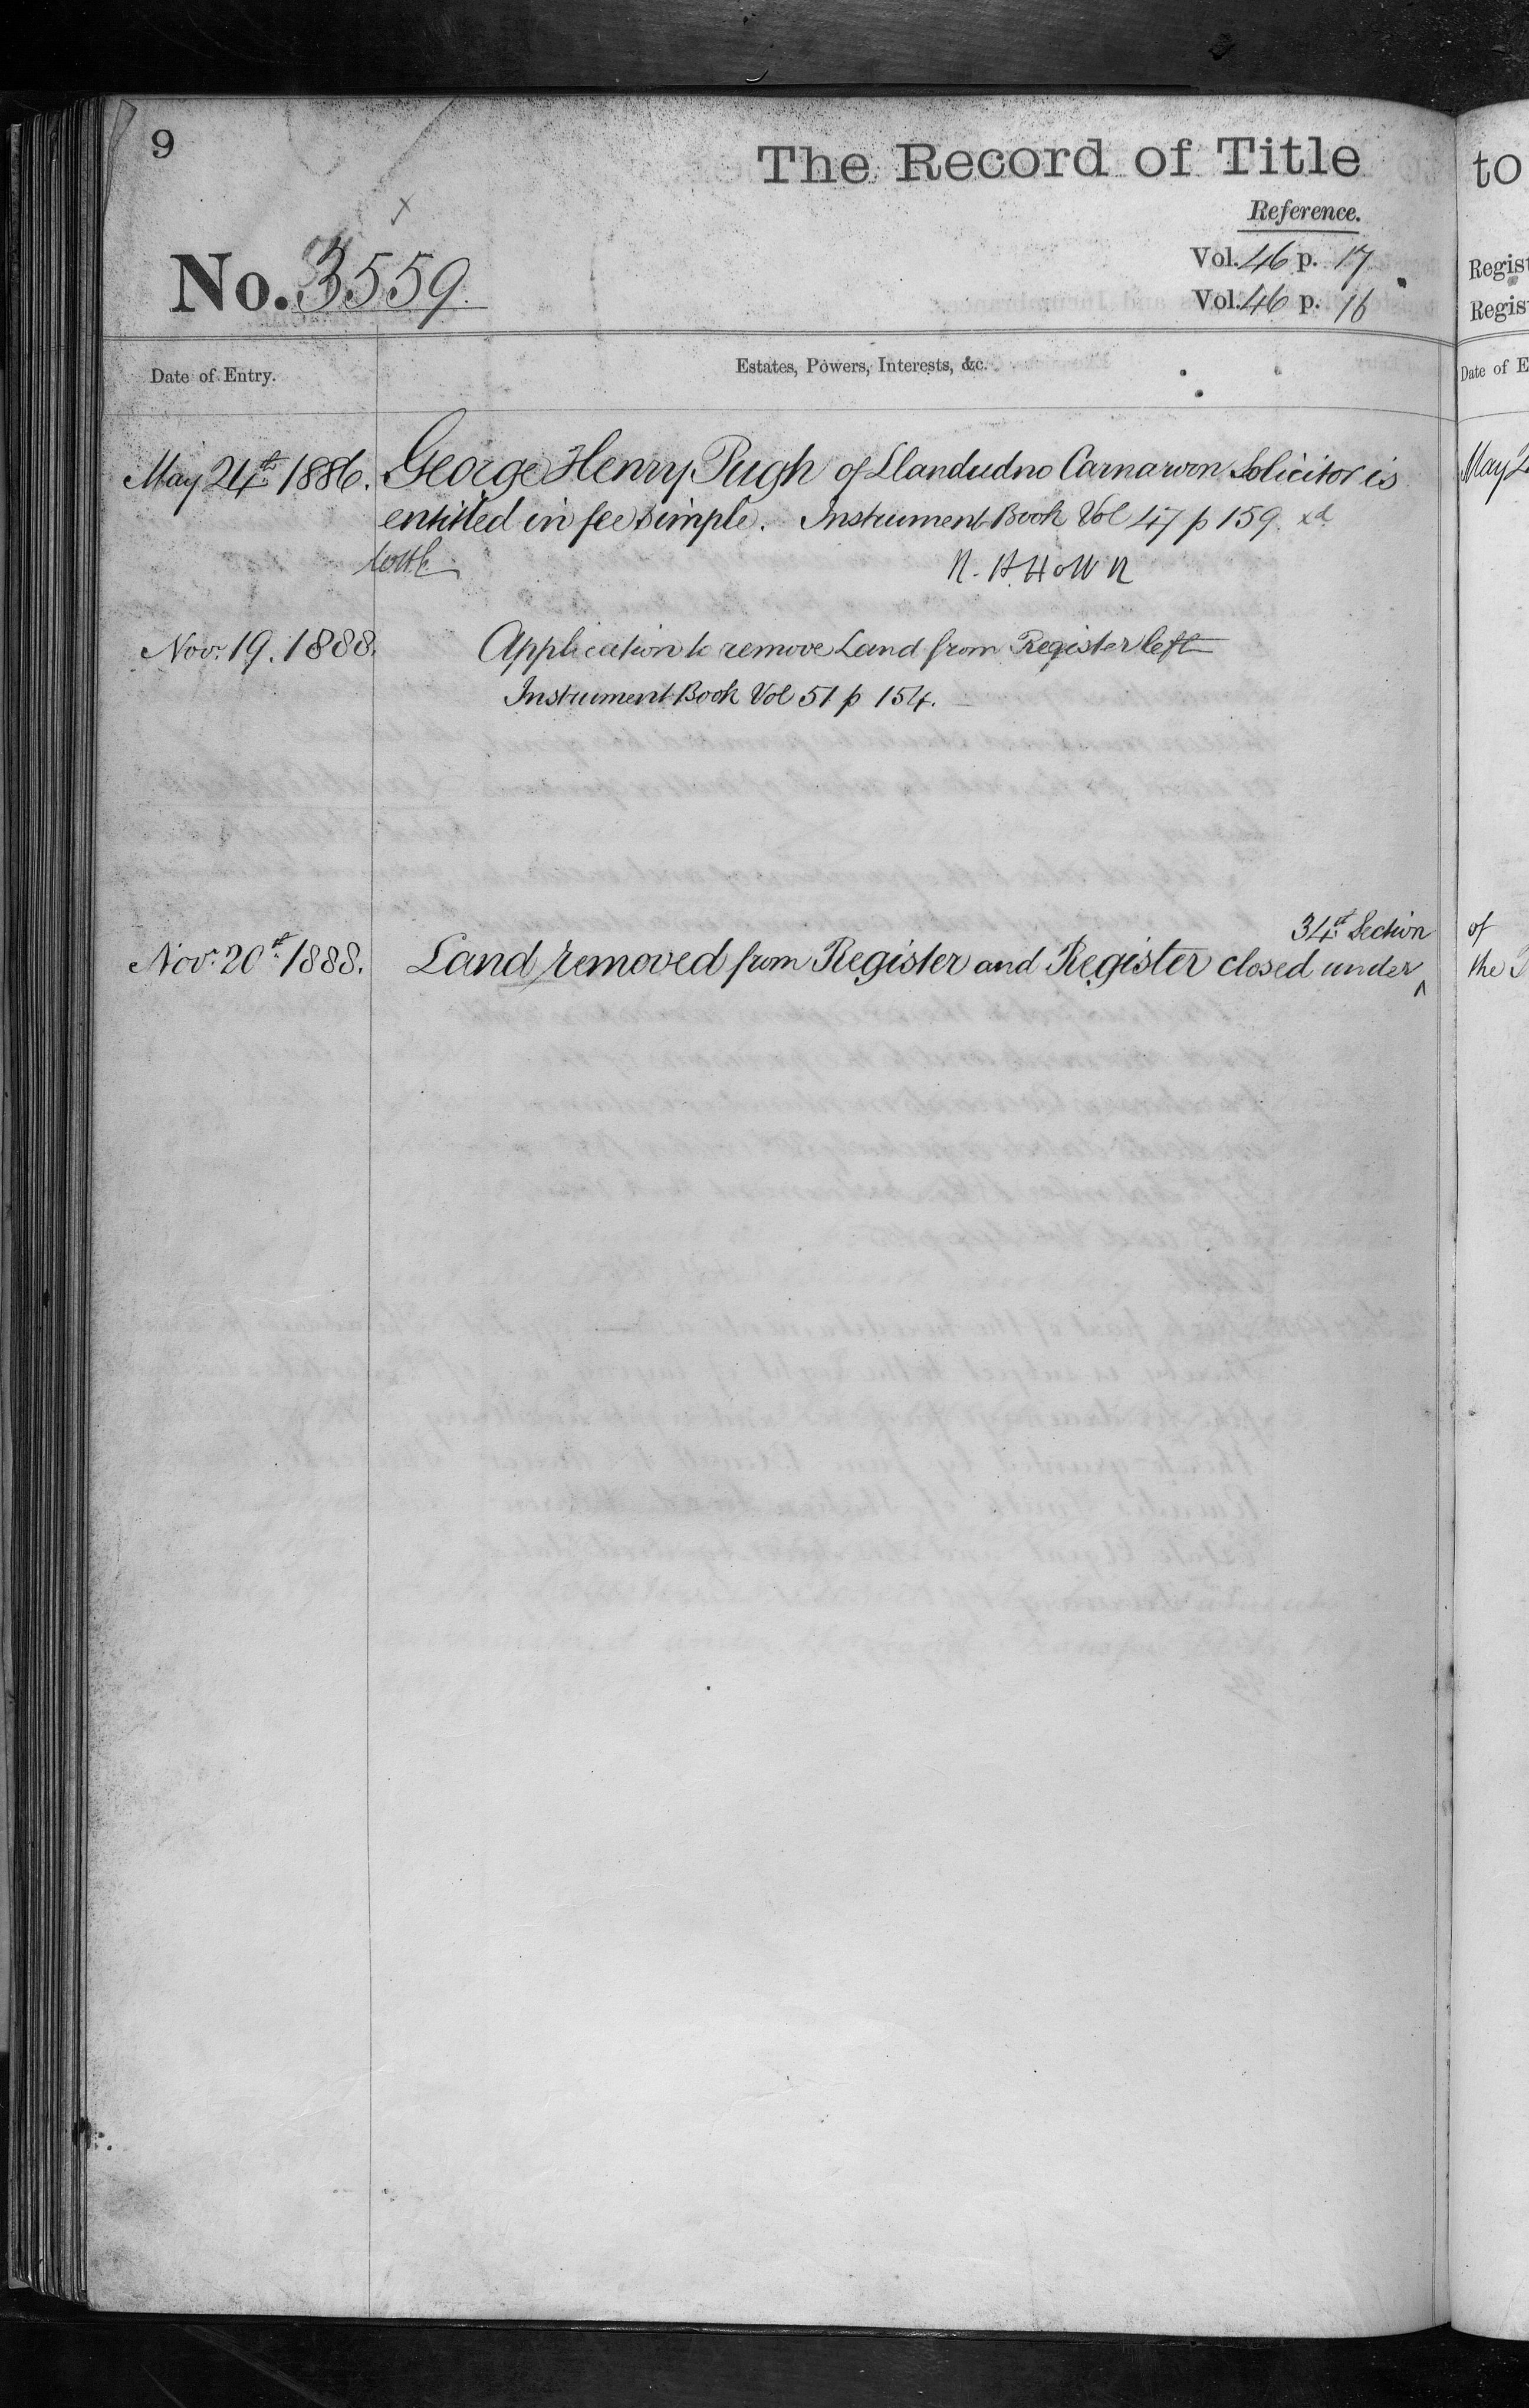 9
The Record of Title
to
Reference.
Vol. 46 p. 17
Vol. 46 p. 16
No. 3559.
Regist
Regis
Date of Entry.
Estates, Powers, Interests, &c.
Date of E
May 24th 1886.
George Henry Pugh of Llandudno Carnarvon Solicitor is
entitled in fee simple. Instrument Book Vol 47 p 159. xd
May 2
Nov. 19. 1888.
Application to remove Land from Register left
Instrument Book Vol 51 p 154.
Nov. 20th 1888.
34th Section
Land removed from Register and Register closed under ^
of
the